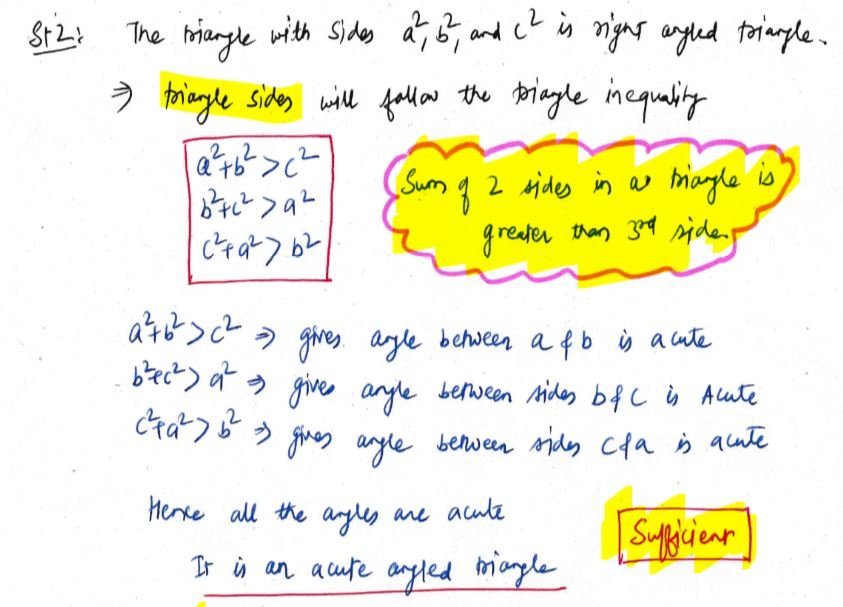 St2: The triangle with sides a², b², and c² is right angled triangle.
⇒ triangle sides will follow the triangle inequality
a²+b² > c²
b²+c² > a²
c²+a² > b²
Sum of 2 sides in a triangle is
greater than 3rd side.
a²+b² > c² ⇒ gives angle between a & b is acute
b²+c² > a² ⇒ gives angle between sides b & c is Acute
c²+a² > b² ⇒ gives angle between sides c & a is acute
Hence all the angles are acute
It is an acute angled triangle
Sufficient